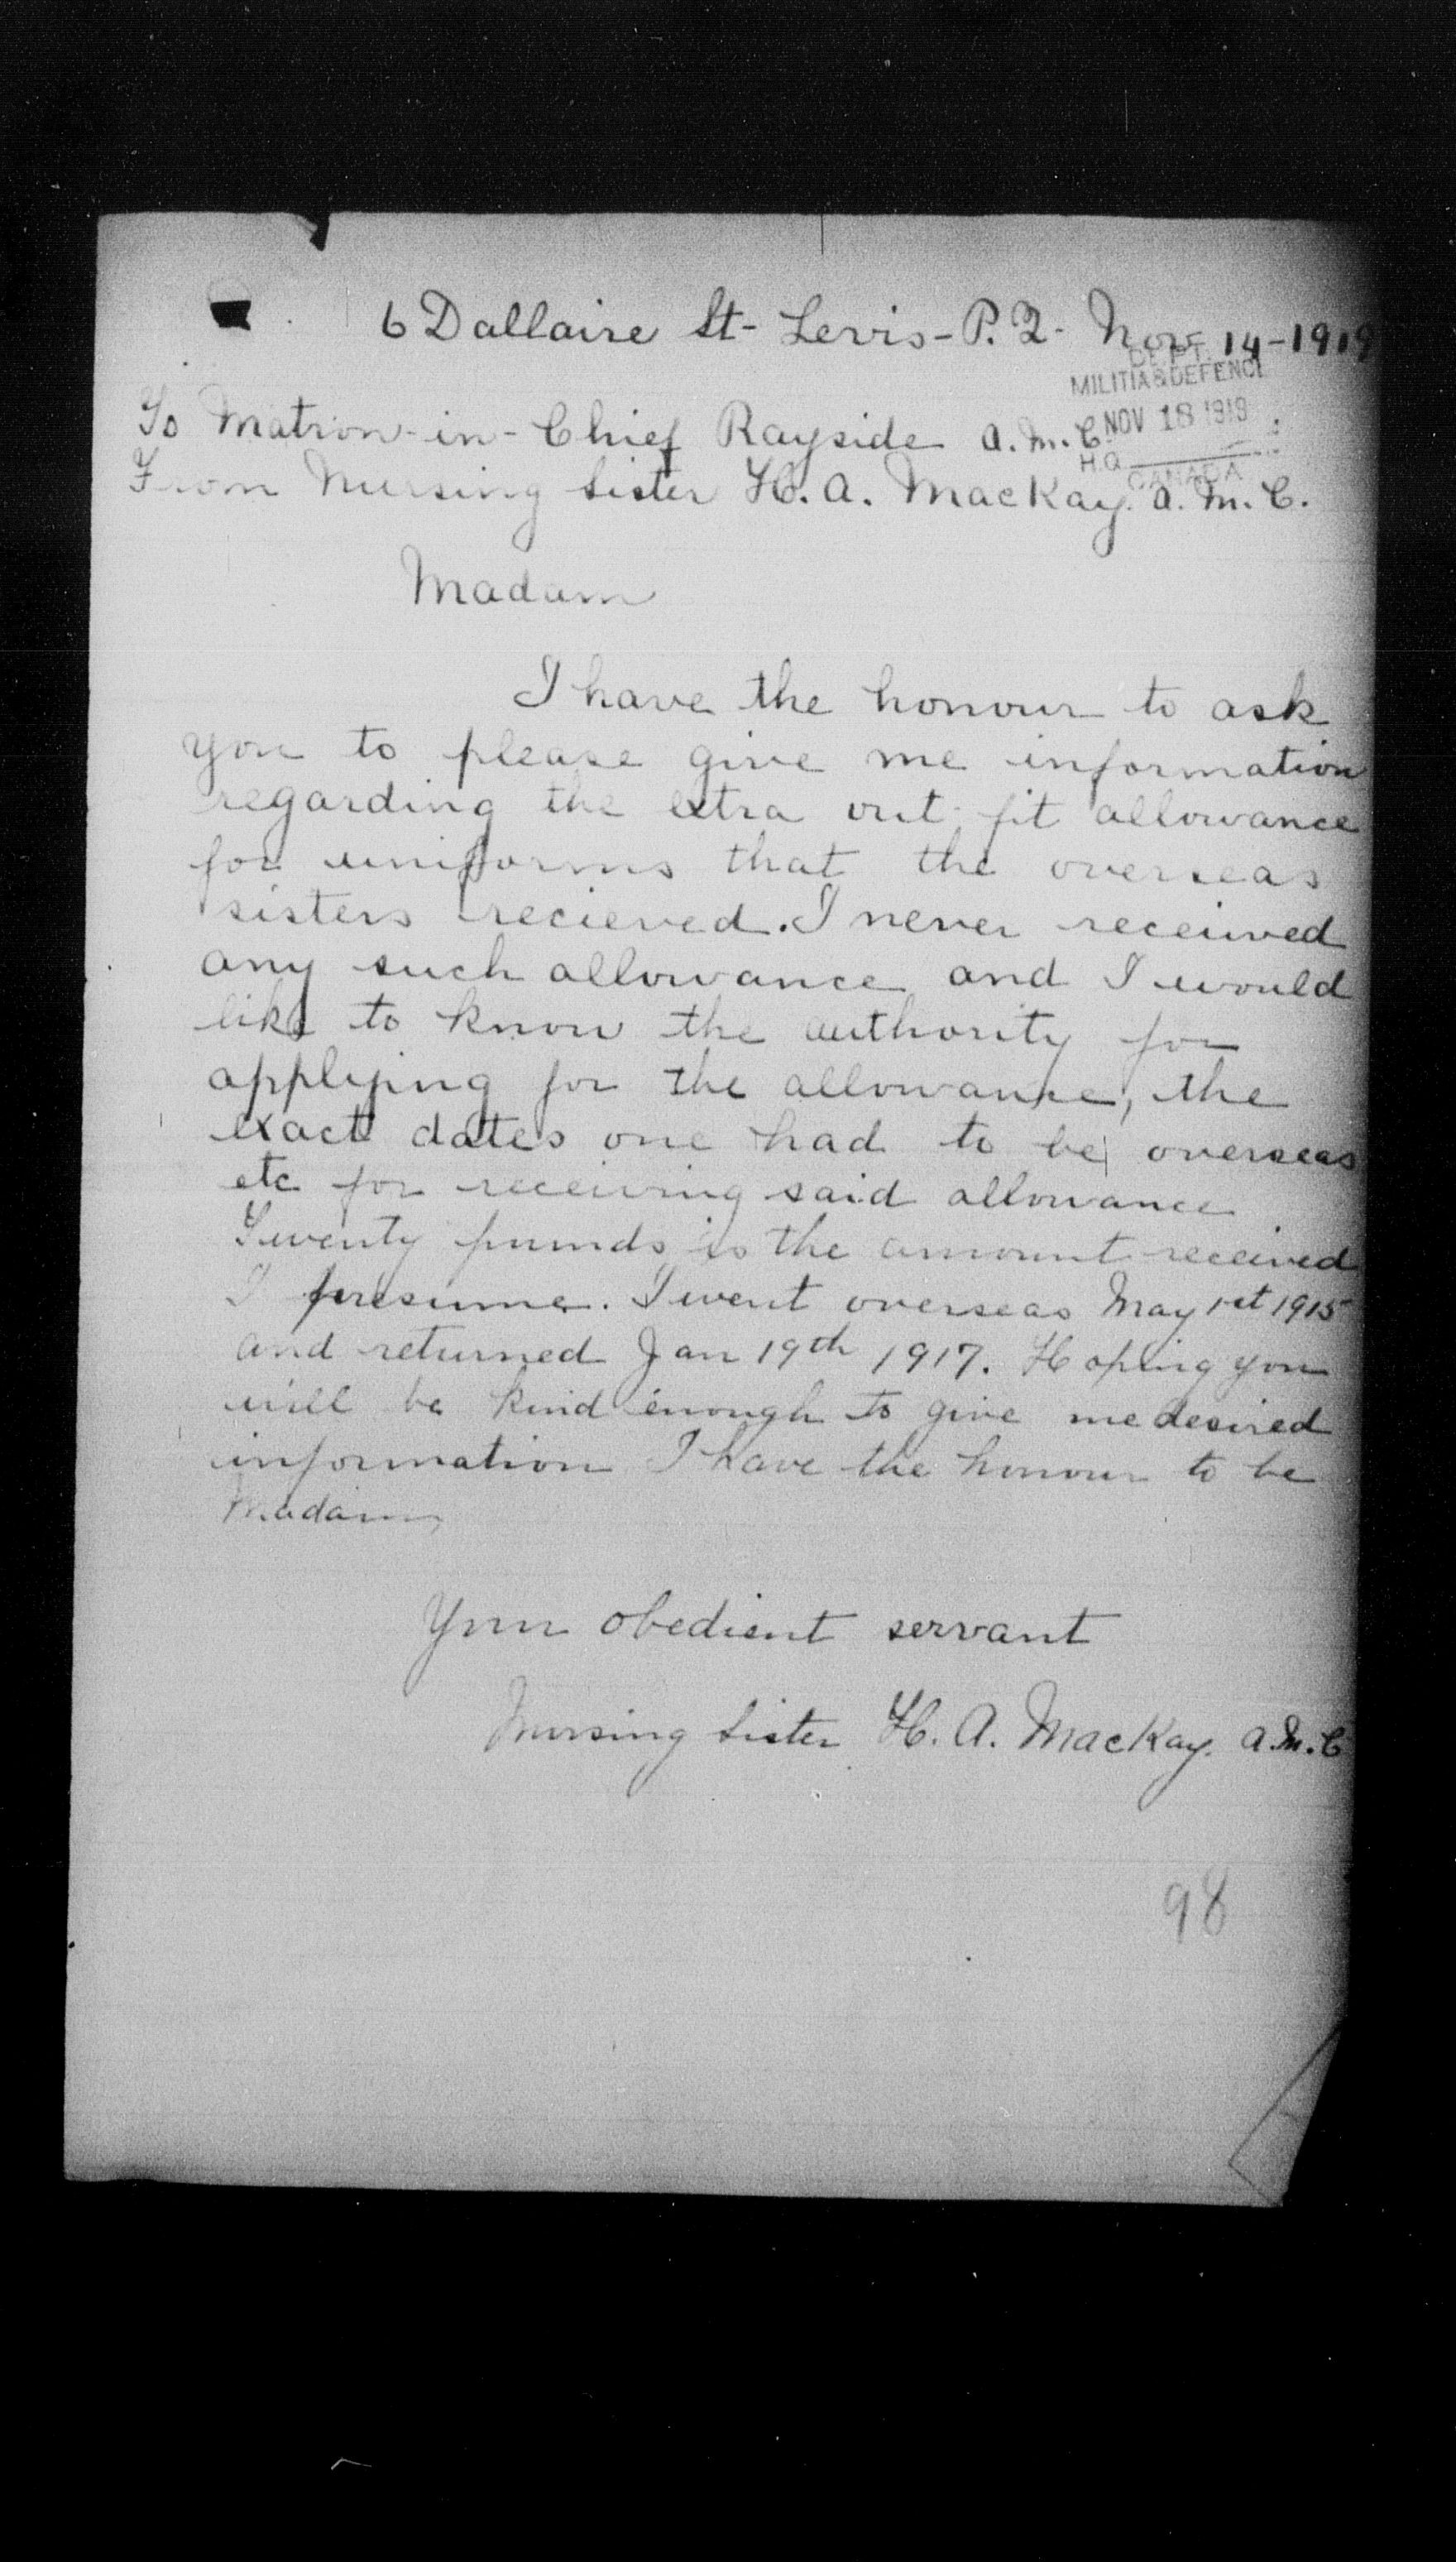 6 Dallaire St - Levis - P. Q. Nov 14 - 1919
DEPT.
MILITIA & DEFENCE
NOV 18 1919
H.Q.
CANADA
To Matron-in-Chief Rayside A.M.C.
From Nursing Sister H. A. MacKay. A. M. C.
Madam
I have the honour to ask
you to please give me information
regarding the extra out fit allowance
for uniforms that the overseas
sisters recieved. I never received
any such allowance and I would
like to know the authority for
applying for the allowance, the
exact dates one had to be overseas
etc for receiving said allowance
Twenty pounds is the amount received
I presume. I went overseas May 1st 1915
and returned Jan 19th 1917. Hoping you
will be kind enough to give me desired
information I have the honour to be
Madam
Your obedient servant
Nursing Sister H. A. MacKay. A.M.C
98